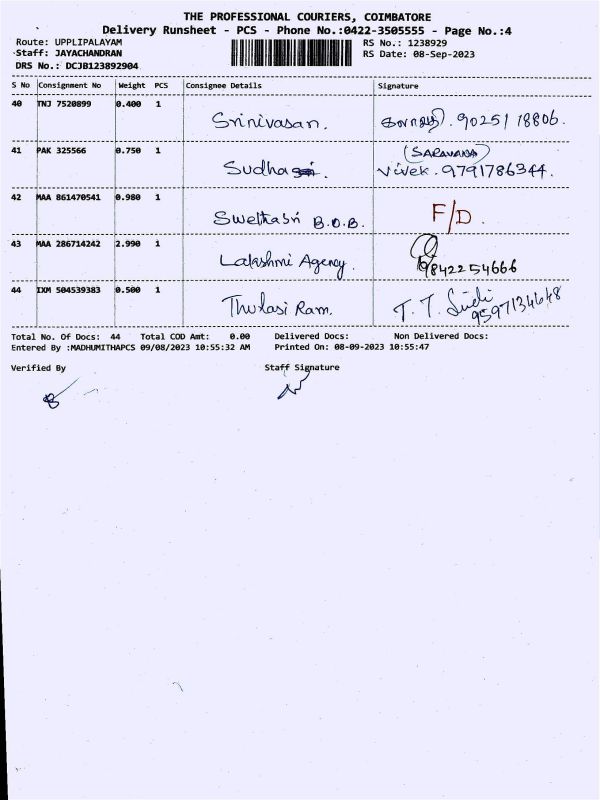 THE PROFESSIONAL COURIERS, COIMBATORE
Delivery Runsheet - PCS - Phone No.:0422-3505555 - Page No.:4
Route: UPPLIPALAYAM RS No.: 1238929
Staff: JAYACHANDRAN RS Date: 08-Sep-2023
DRS No.: DCJB123892904
S No Consignment No Weight PCS Consignee Details Signature
40 TNJ 7520899 0.400 1 Srinivasan. 9025118806.
41 PAK 325566 0.750 1 Sudha (SARAVANA) Vivek. 9791786344.
42 MAA 861470541 0.980 1 Swethasri B.O.B. F/D.
43 MAA 286714242 2.990 1 Lakshmi Agency. 9842254666
44 IXM 504539383 0.500 1 Thulasi Ram. T. T. 9597134648
Total No. Of Docs: 44 Total COD Amt: 0.00 Delivered Docs: Non Delivered Docs:
Entered By :MADHUMITHAPCS 09/08/2023 10:55:32 AM Printed On: 08-09-2023 10:55:47
Verified By Staff Signature